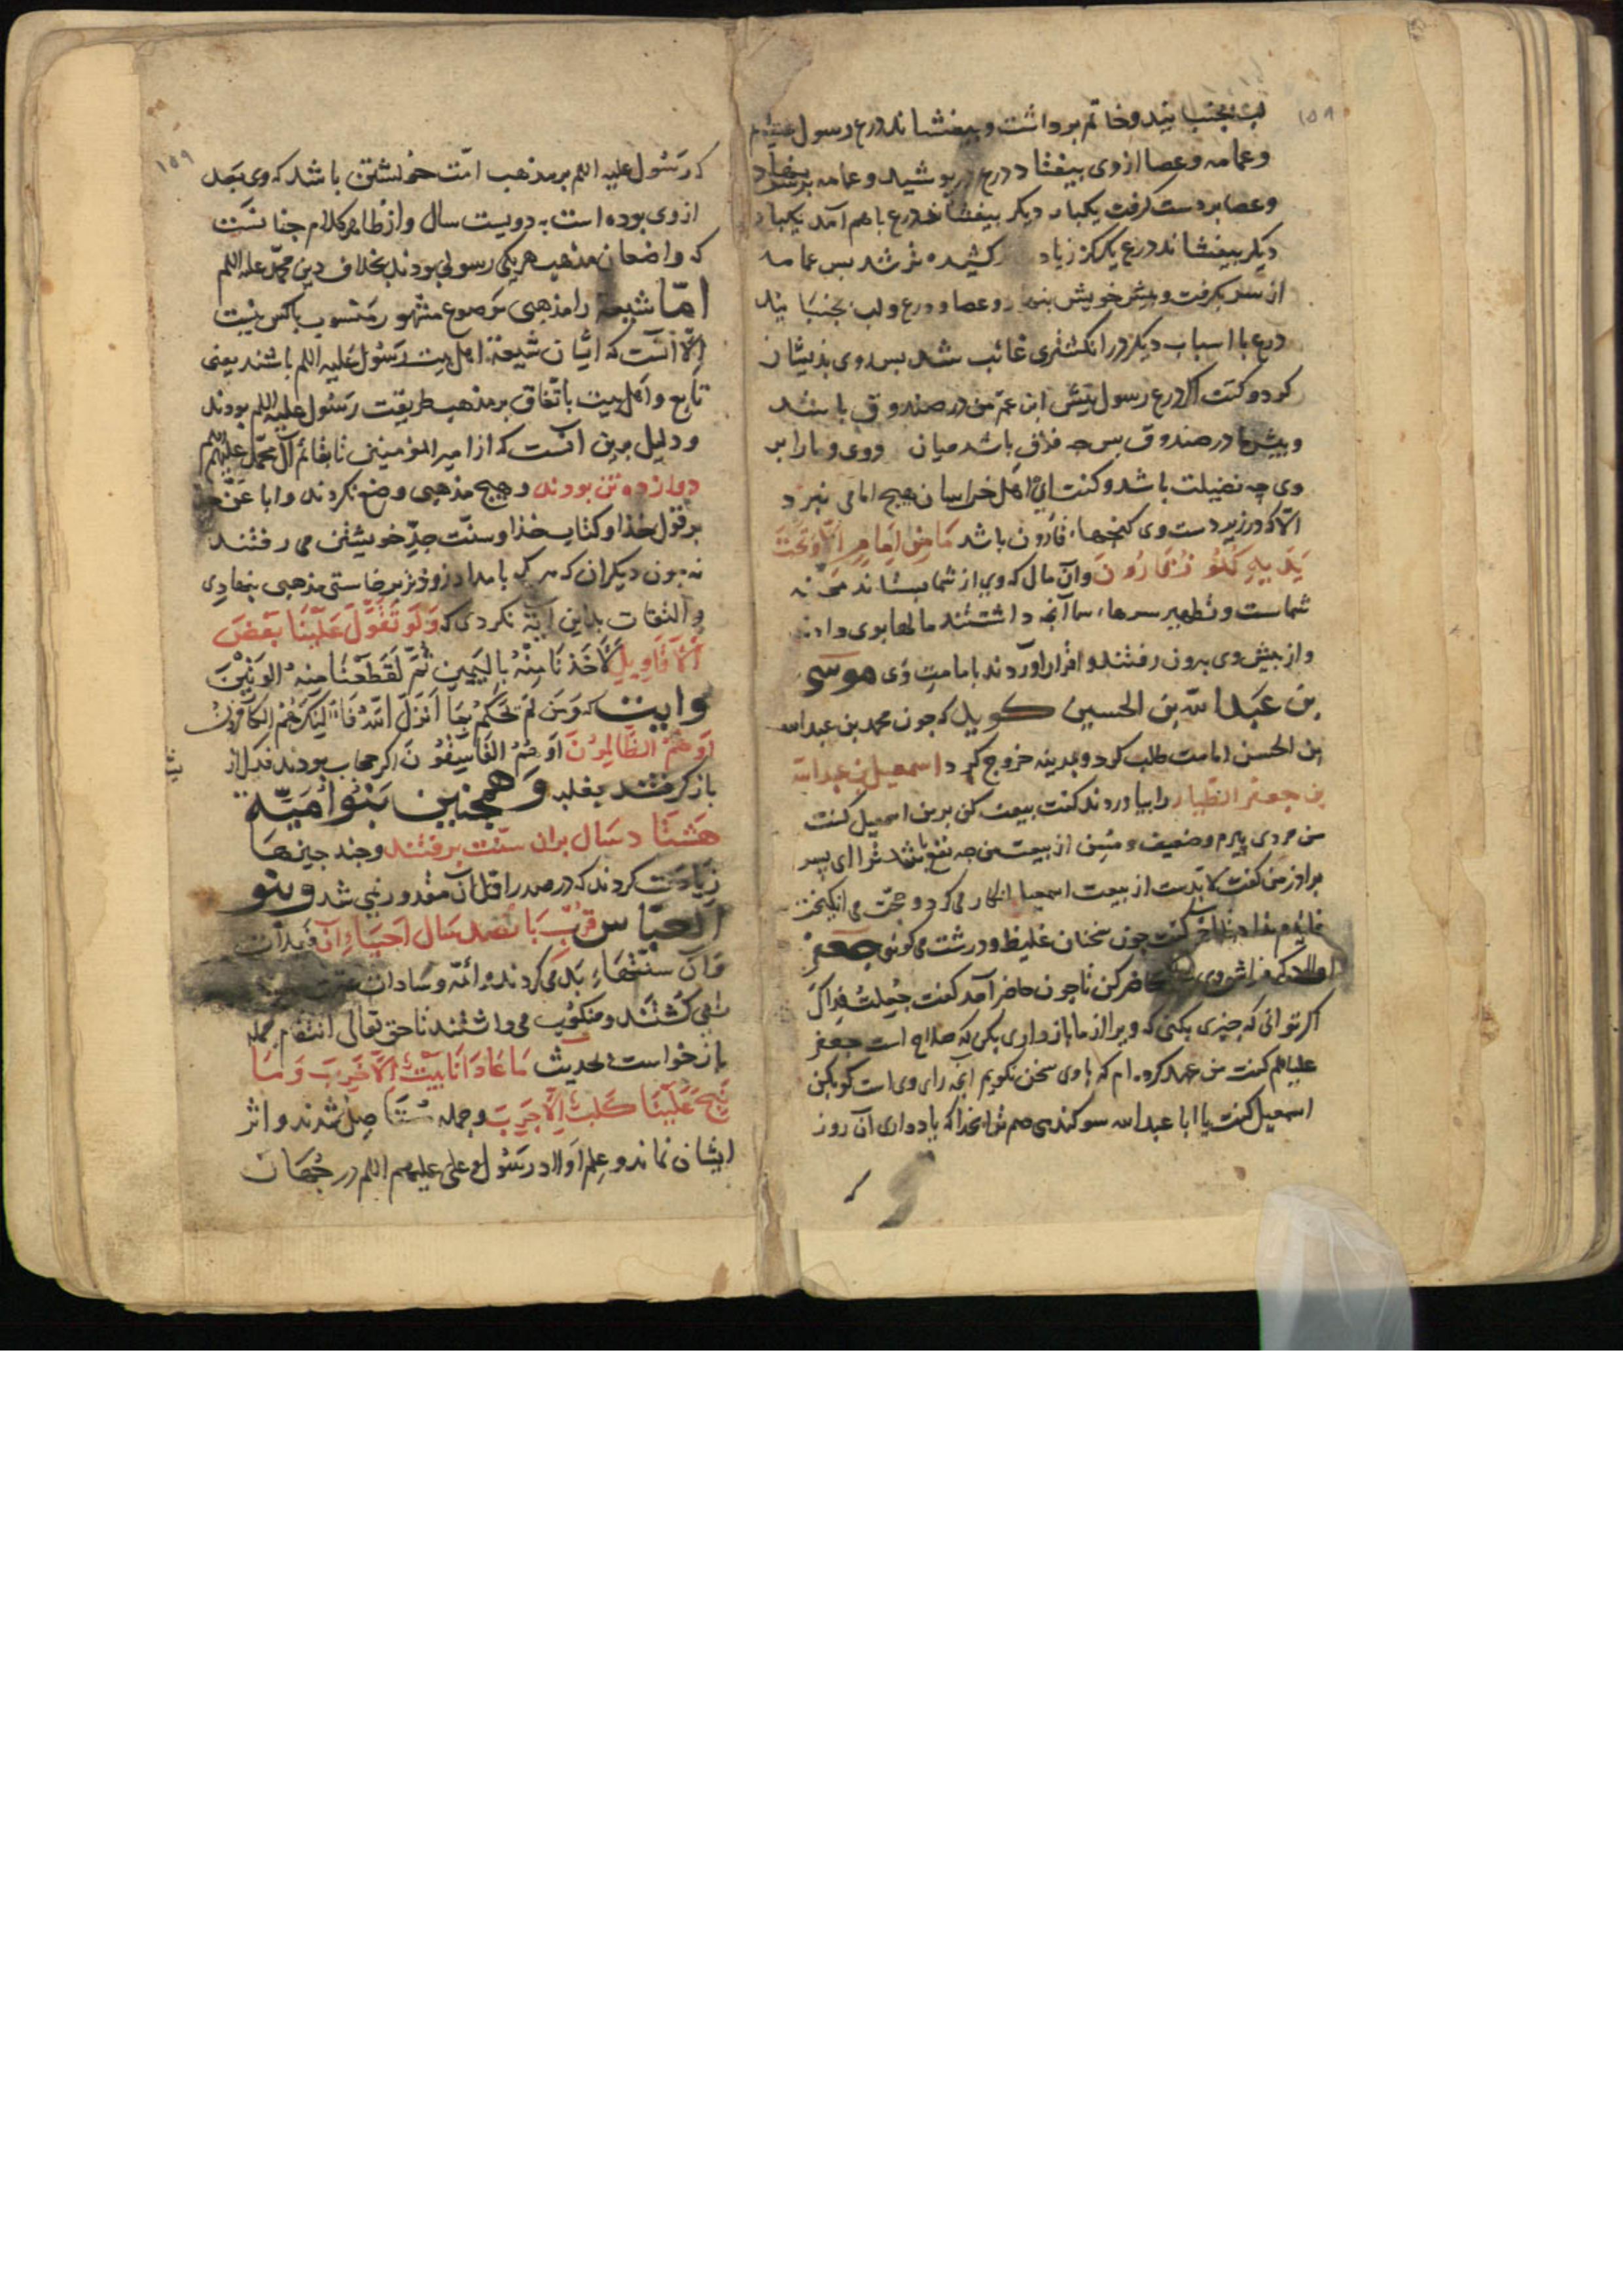 لب بجنبانید و خاتم برداشت و بیفشاند درع رسول
وعمامه وعصا ازوی بیفتاد درع در پوشید وعمامه برسر نهاد
وعصا بردست کرفت یکبار دیکر بیفشاند درع باهم آمد یکبار
دیکر بیفشاند درع یک کز زیاد کشیده تر شد بس عمامه
از سر بکرفت وپیش خویش بنهاد وعصا ودرع ولب بجنبانید
درع با اسباب دیکر در انکشتری غائب شد بس روی بذیشان
کرد وکفت اکر درع رسول پیش ابن عم من در صندوق باشد
وپیش ما در صندوق بس چه فرق باشد میان وی وما را بر
وی چه فضیلت باشد وکفت ای اهل خراسان هیچ امامی نبود
الا که در زیر دست وی کنجهاء قارون باشد مَا مِن اِمَامٍ اِلّا وَتَحْتَ
یَدَیهِ کُنُوزُ قَارُونَ وآن مال که وی از شما بستاند
شماست وتطهیر سرها شما آنچه داشتند مالها بوی دادند
واز پیش وی بیرون رفتند واقرار آوردند بامامت وی موسی
بن عبدالله بن الحسین کوید که چون محمد بن عبدالله
بن الحسن امامت طلب کرد وبمدینه خروج کرد اسمعیل بن عبدالله
بن جعفر الطیار را بیاوردند کفت بیعت کن برین اسمعیل کفت
من مردی پیرم وضعیف ومسن از بیعت من چه نفع باشد ترا ای پسر
براذر من کفت لابدست از بیعت اسمعیل انکار می کرد وحجت می انکیخت
کفت چون سخنان غلیظ ودرشت می کوئی جعفر
حاضر کن تا چون حاضر آمد کفت جُعِلتُ فِداکَ
اکر توانی که چیزی بکنی که ویرا از ما بازداری بکن که صلاح است جعفر
علیه السلم کفت من عهد کرده ام که باوی سخن نکویم آنچه رای وی است کو بکن
اسمعیل کفت یا ابا عبدالله سوکند می دهم ترا بخدا که یاد داری آن روز
۱۵۹
که رَسُول علیه السلم بر مذهب امّت خویشتن باشد که وی بَعد
ازوی بوده است به دویست سال واز ظاهر کلام چنانست
که واضعان مذهب هر یکی رسولی بودند بخلاف دین محمّد علیه السلم
امّا شیعه را مذهبی مَوضوع مشهور مَنسوب باکس نیست
الّا آنست که ایشان شیعة اهل بیت رسُول عَلیه السلم باشند یعنی
تابع واهل بیت باتّفاق بر مذهب طریقت رَسُول علیه السلم بودند
ودلیل برین آنست که از امیر المؤمنین تا بقائم آل محمّد علیهم السلم
دوازده تن بودند وهیچ مذهبی وضع نکردند وابا عَن جدّ
بر قول خدا وکتاب خدا وسنّت جدّ خویشتن می رفتند
نه چون دیکران که هر که بامداد زوذتر برخاستی مذهبی بنهادی
والتفات بذین آیة نکردی که وَلَو تَقَوَّلَ عَلَینَا بَعْضَ
الأقَاوِیلِ لَأَخَذنَا مِنْهُ بِالیَمِینِ ثُمَّ لَقَطَعْنَا مِنهُ الوَتِیْنَ
وایت که وَمَن لَم یَحْکُمْ بِمَا اَنزَلَ اللهُ فَاُولٰئِکَ هُمُ الکَافِرُونَ
اَو هُمُ الظَّالِمُونَ اَو هُمُ الفَاسِقُونَ اکر صحاب بودند فدک از
باز کرفتند بغلبه وَهمچنین بَنُو اُمَیّه
هَشتَاد سَال بران سنّت برفتند وچند چیزهَا
زیادَت کردند که در صدر اوّل آن مقدور نمی شد وبنو
العبّاس قربِ بَانصَد سَال اَحیَاءِ آن
وَآن سنّتهَاءِ بَد می کردند وائمّه وسَادات
می کُشتَند ومنکوب می داشتند تا حق تعالی انتقام جمله
بازخواست بحدیث مَا عَادَانَا بَیْتٌ اِلّا خَرِبَ وَمَا
نَبَحَ عَلَینَا کَلبٌ اِلّا جَرِبَ وجمله مُستَأصِل شُدند واثر
ایشان نماند وعِلم اَولاد رَسُول وعلی علیهم السلم در جُهَان